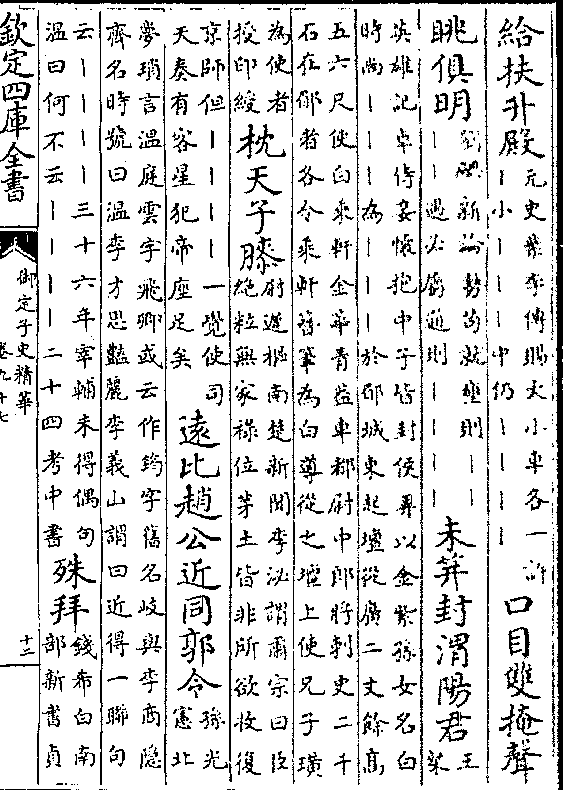 給扶升殿
元史粲李傳賜大小車各一許
丨小丨丨丨中仍丨丨丨丨
口目雙掩聲
眺俱明
劉晝新論勢苟就壅則丨丨
丨丨丨遇必屬通則丨丨丨丨
未笄封渭陽君
王
粲
英雄記卓侍妾懷抱中子皆封侯弄以金紫孫女名白
時尚丨丨丨為丨丨丨丨於郿城東起壇從廣二丈餘高
五六尺使白乘軒金華青蓋車都尉中郎將刺史二千
石在郿者各令乘軒簪筆為白導從之壇上使兄子璜
為使者
授印綬
枕天子膝
尉遲樞南楚新聞李泌謂肅宗曰臣
絕粒無家祿位茅土皆非所欲收復
京師但丨丨丨丨一覺使司
天奏有客星犯帝座足矣
遠比趙公近同郭令
孫光
憲北
夢瑣言溫庭雲字飛卿或云作筠字舊名岐與李商隱
齊名時號曰溫李才思豔麗李義山謂曰近得一聯句
云丨丨丨丨三十六年宰輔未得偶句
溫曰何不云丨丨丨丨二十四考中書
殊拜
錢希白南
部新書貞
欽定四庫全書
御定子史精華
卷九十七
十三